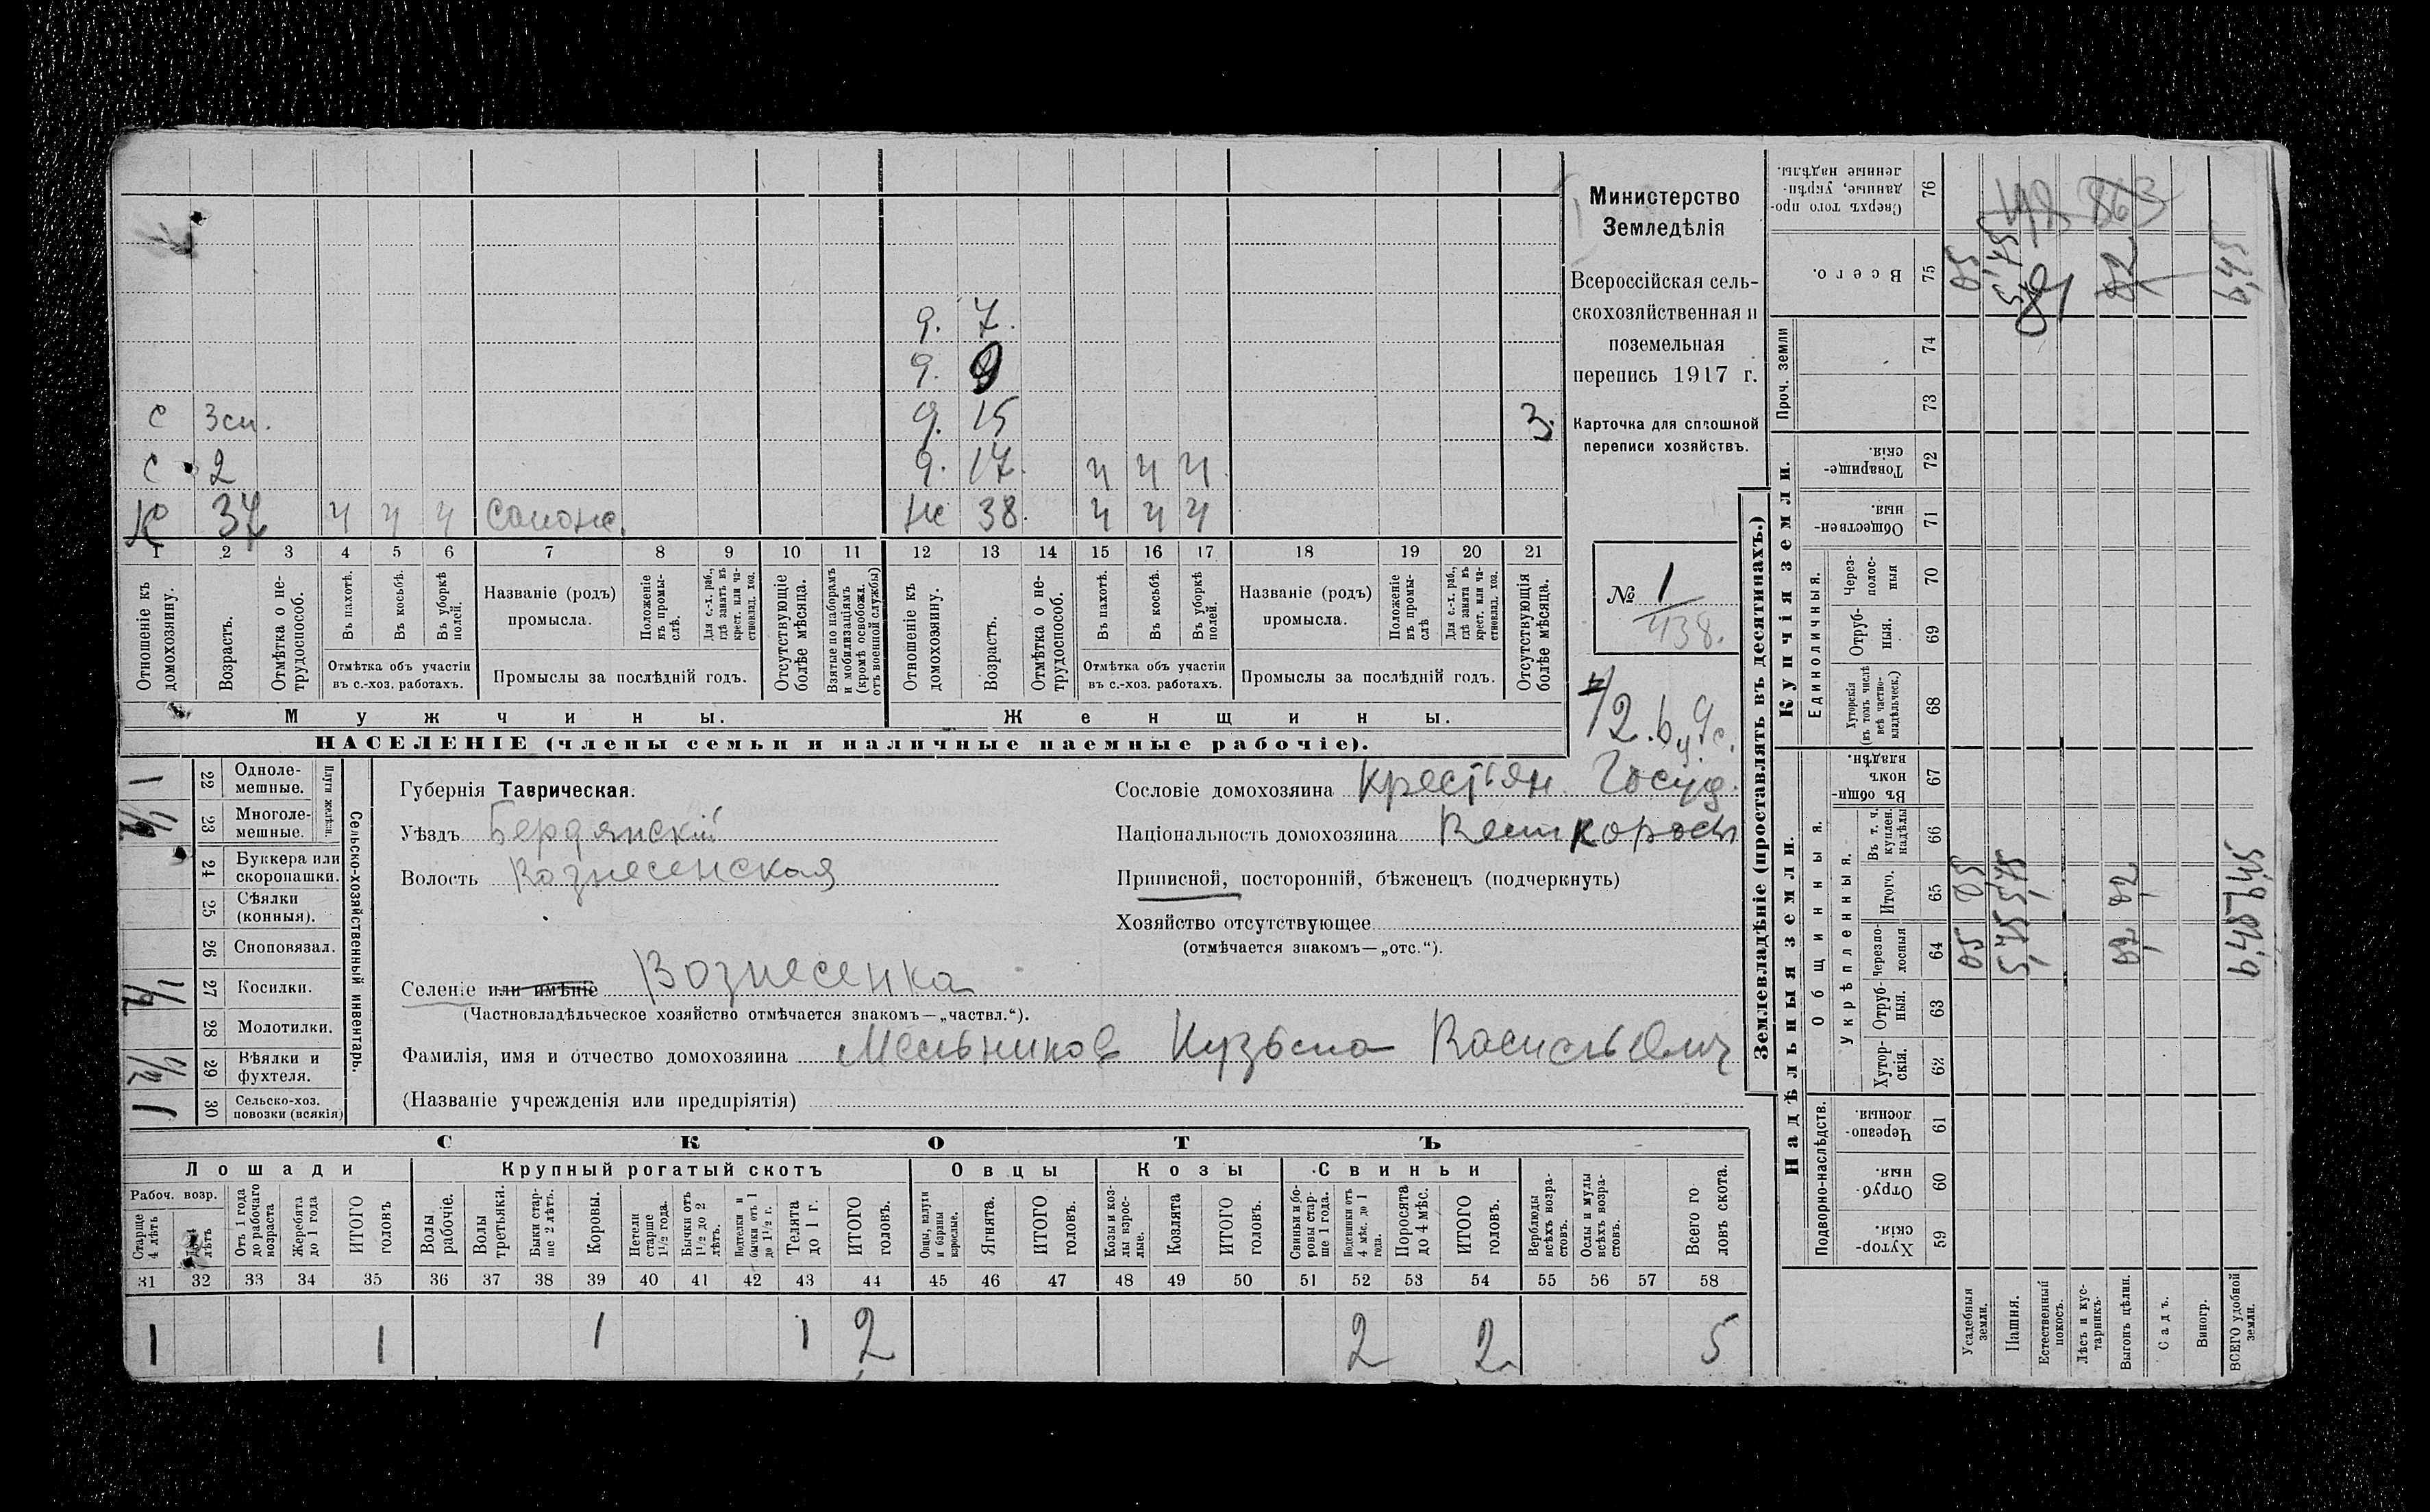 Министерство
Земледѣлія
Всероссійская сель-
скохозяйственная и
поземельная
перепись 1917 г.
Карточка для сплошной
переписи хозяйствъ.
№ 1
438.
9. 7.
9. 9
С 3 Зсн. 9. 15 3.
С 2 9. 17. ч ч ч
К 37 ч ч ч 38. ч ч ч
1 2 3 4 5 6 7 8 9 10 11 12 13 14 15 16 17 18 19 20 21
Отношеніе къ домохозяину.
Возрастъ.
Отмѣтка о не-трудоспособ.
Въ пахотѣ.
Въ косьбѣ.
Въ уборкѣ полей.
Отмѣтка объ участіи
въ с.-хоз. работахъ.
Названіе (родъ)
промысла.
Положеніе въ промы-слѣ.
Для с.-х. раб., гдѣ занятъ въ крест. или ча-стновлад. хоз.
Промыслы за послѣдній годъ.
Отсутствующіе болѣе мѣсяца.
Взятые по наборамъ и мобилизаціямъ (кромѣ освобожд. отъ военной службы)
Отношеніе къ домохозяину.
Возрастъ.
Отмѣтка о не-трудоспособ.
Въ пахотѣ.
Въ косьбѣ.
Въ уборкѣ полей.
Отмѣтка объ участіи
въ с.-хоз. работахъ.
Названіе (родъ)
промысла.
Положеніе въ промы-слѣ
Для с.-х. раб., гдѣ занята въ крест. или ча-стновлад. хоз.
Промыслы за послѣдній годъ.
Отсутствующія болѣе мѣсяца.
Мужчины. Женщины.
НАСЕЛЕНІЕ (члены семьи и наличные наемные рабочіе).
Сельско-хозяйственный инвентарь.
Плуги желѣзн.
1 22 Одноле-мешные.
23 Многоле-мешные.
24 Буккера или скоропашки.
25 Сѣялки (конныя).
26 Сноповязал.
27 Косилки.
28 Молотилки.
29 Вѣялки и фухтеля.
1 30 Сельско-хоз. повозки (всякія)
Губернія Таврическая.
Уѣздъ Бердянскій
Волость Вознесенская
Сословіе домохозяина Крестьян Госуд.
Національность домохозяина Великоросъ
Приписной, посторонній, бѣженецъ (подчеркнуть)
Хозяйство отсутствующее
(отмѣчается знакомъ—„отс.“).
Селеніе или имѣніе Вознесенка
(Частновладѣльческое хозяйство отмѣчается знакомъ—„частвл.“).
Фамилія, имя и отчество домохозяина Мельников Кузьма Васильевич
(Названіе учрежденія или предпріятія)
СКОТЪ
Лошади Крупный рогатый скотъ Овцы Козы Свиньи
Рабоч. возр.
Старше 4 лѣтъ
лѣтъ
Отъ 1 года до рабочаго возраста
Жеребята до 1 года
ИТОГО головъ
Волы рабочіе.
Волы третьяки.
Быки стар-ше 2 лѣтъ.
Коровы.
Нетели старше 1 1/2 года.
Бычки отъ 1 1/2 до 2 лѣтъ.
Подтелки и бычки отъ 1 до 1 1/2 г.
Телята до 1 г.
ИТОГО головъ.
Овцы, валухи и бараны взрослые.
Ягнята.
ИТОГО головъ.
Козы и коз-лы взрос-лые.
Козлята
ИТОГО головъ.
Свиньи и бо-ровы стар-ше 1 года.
Подсвинки отъ 4 мѣс. до 1 года.
Поросята до 4 мѣс.
ИТОГО головъ.
Верблюды всѣхъ возра-стовъ.
Ослы и мулы всѣхъ возра-стовъ.
Всего го-ловъ скота.
31 32 33 34 35 36 37 38 39 40 41 42 43 44 45 46 47 48 49 50 51 52 53 54 55 56 57 58
1 1 1 1 2 2 2 5
Землевладѣніе (проставлять въ десятинахъ.)
Надѣльныя земли. Купчія земли.
Проч. земли
Подворно-наслѣдств.
Общинныя.
Укрѣпленныя.
Единоличныя.
Сверхъ того про-данные, укрѣп-ленные надѣлы. 76
Всего. 75
74
73
Товарище-скія. 72
Обществен-ныя. 71
Через-полос-ныя 70
Отруб-ныя. 69
Хуторскія (въ томъ числѣ всѣ частно-владѣльческ.) 68
Въ общин-номъ владѣн. 67
Въ т. ч. куплен. надѣлы 66
Итого. 65
Черезпо-лосныя 64
Отруб-ныя. 63
Хутор-скія. 62
Черезпо-лосныя. 61
Отруб-ныя. 60
Хутор-скія. 59
Усадебныя земли.
Пашня.
Естественный покосъ.
Лѣсъ и кус-тарникъ.
Выгонъ цѣлин.
Садъ.
Виногр.
ВСЕГО удобной земли.
05 05 05
5,45 5,45 5,45
6,45 6,45 6,45